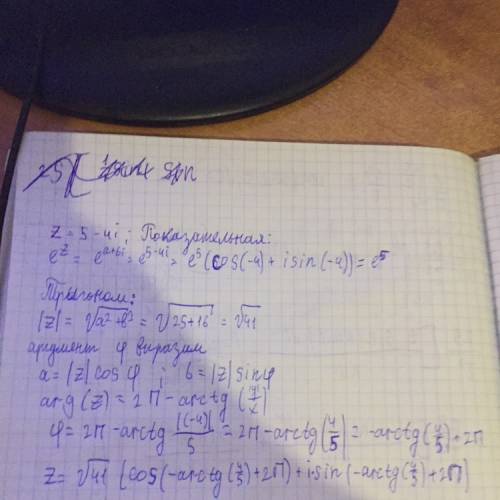 z = 5 - 4i ; Показательная:
e^z = e^{a+bi} = e^{5-4i} = e^5 (cos(-4) + i sin(-4)) = e^5
Тригоном:
|z| = √(a² + b²) = √(25+16) = √41
аргумент φ выразим
a = |z| cos φ ; b = |z| sin φ
arg(z) = 2π - arctg (y/x)
φ = 2π - arctg |(-4)|/5 = 2π - arctg(4/5) = -arctg(4/5) + 2π
z = √41 (cos(-arctg(4/5) + 2π) + i sin(-arctg(4/5) + 2π)